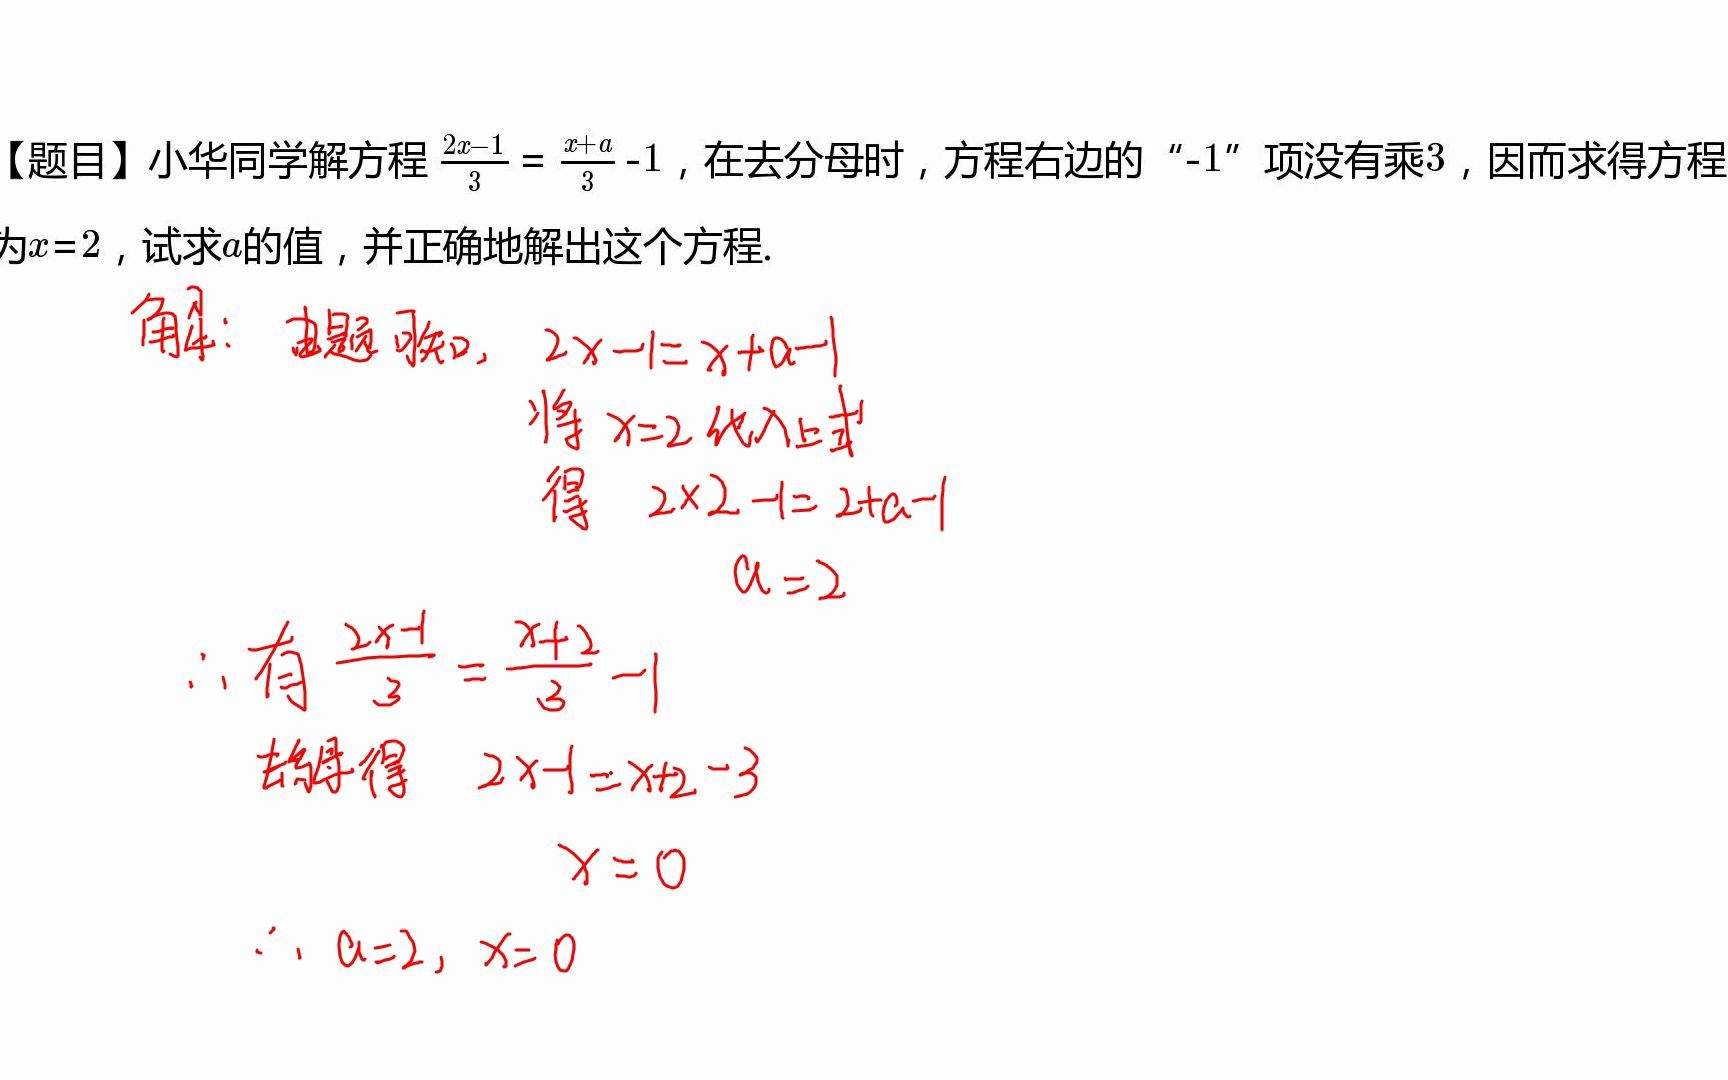 【题目】小华同学解方程 \frac{2x-1}{3} = \frac{x+a}{3} -1，在去分母时，方程右边的“-1”项没有乘3，因而求得方程
为x=2，试求a的值，并正确地解出这个方程.
解：由题可知，2x-1=x+a-1
将 x=2 代入上式
得 2×2-1=2+a-1
a=2
∴有 \frac{2x-1}{3} = \frac{x+2}{3} -1
去分母得 2x-1=x+2-3
x=0
∴ a=2，x=0